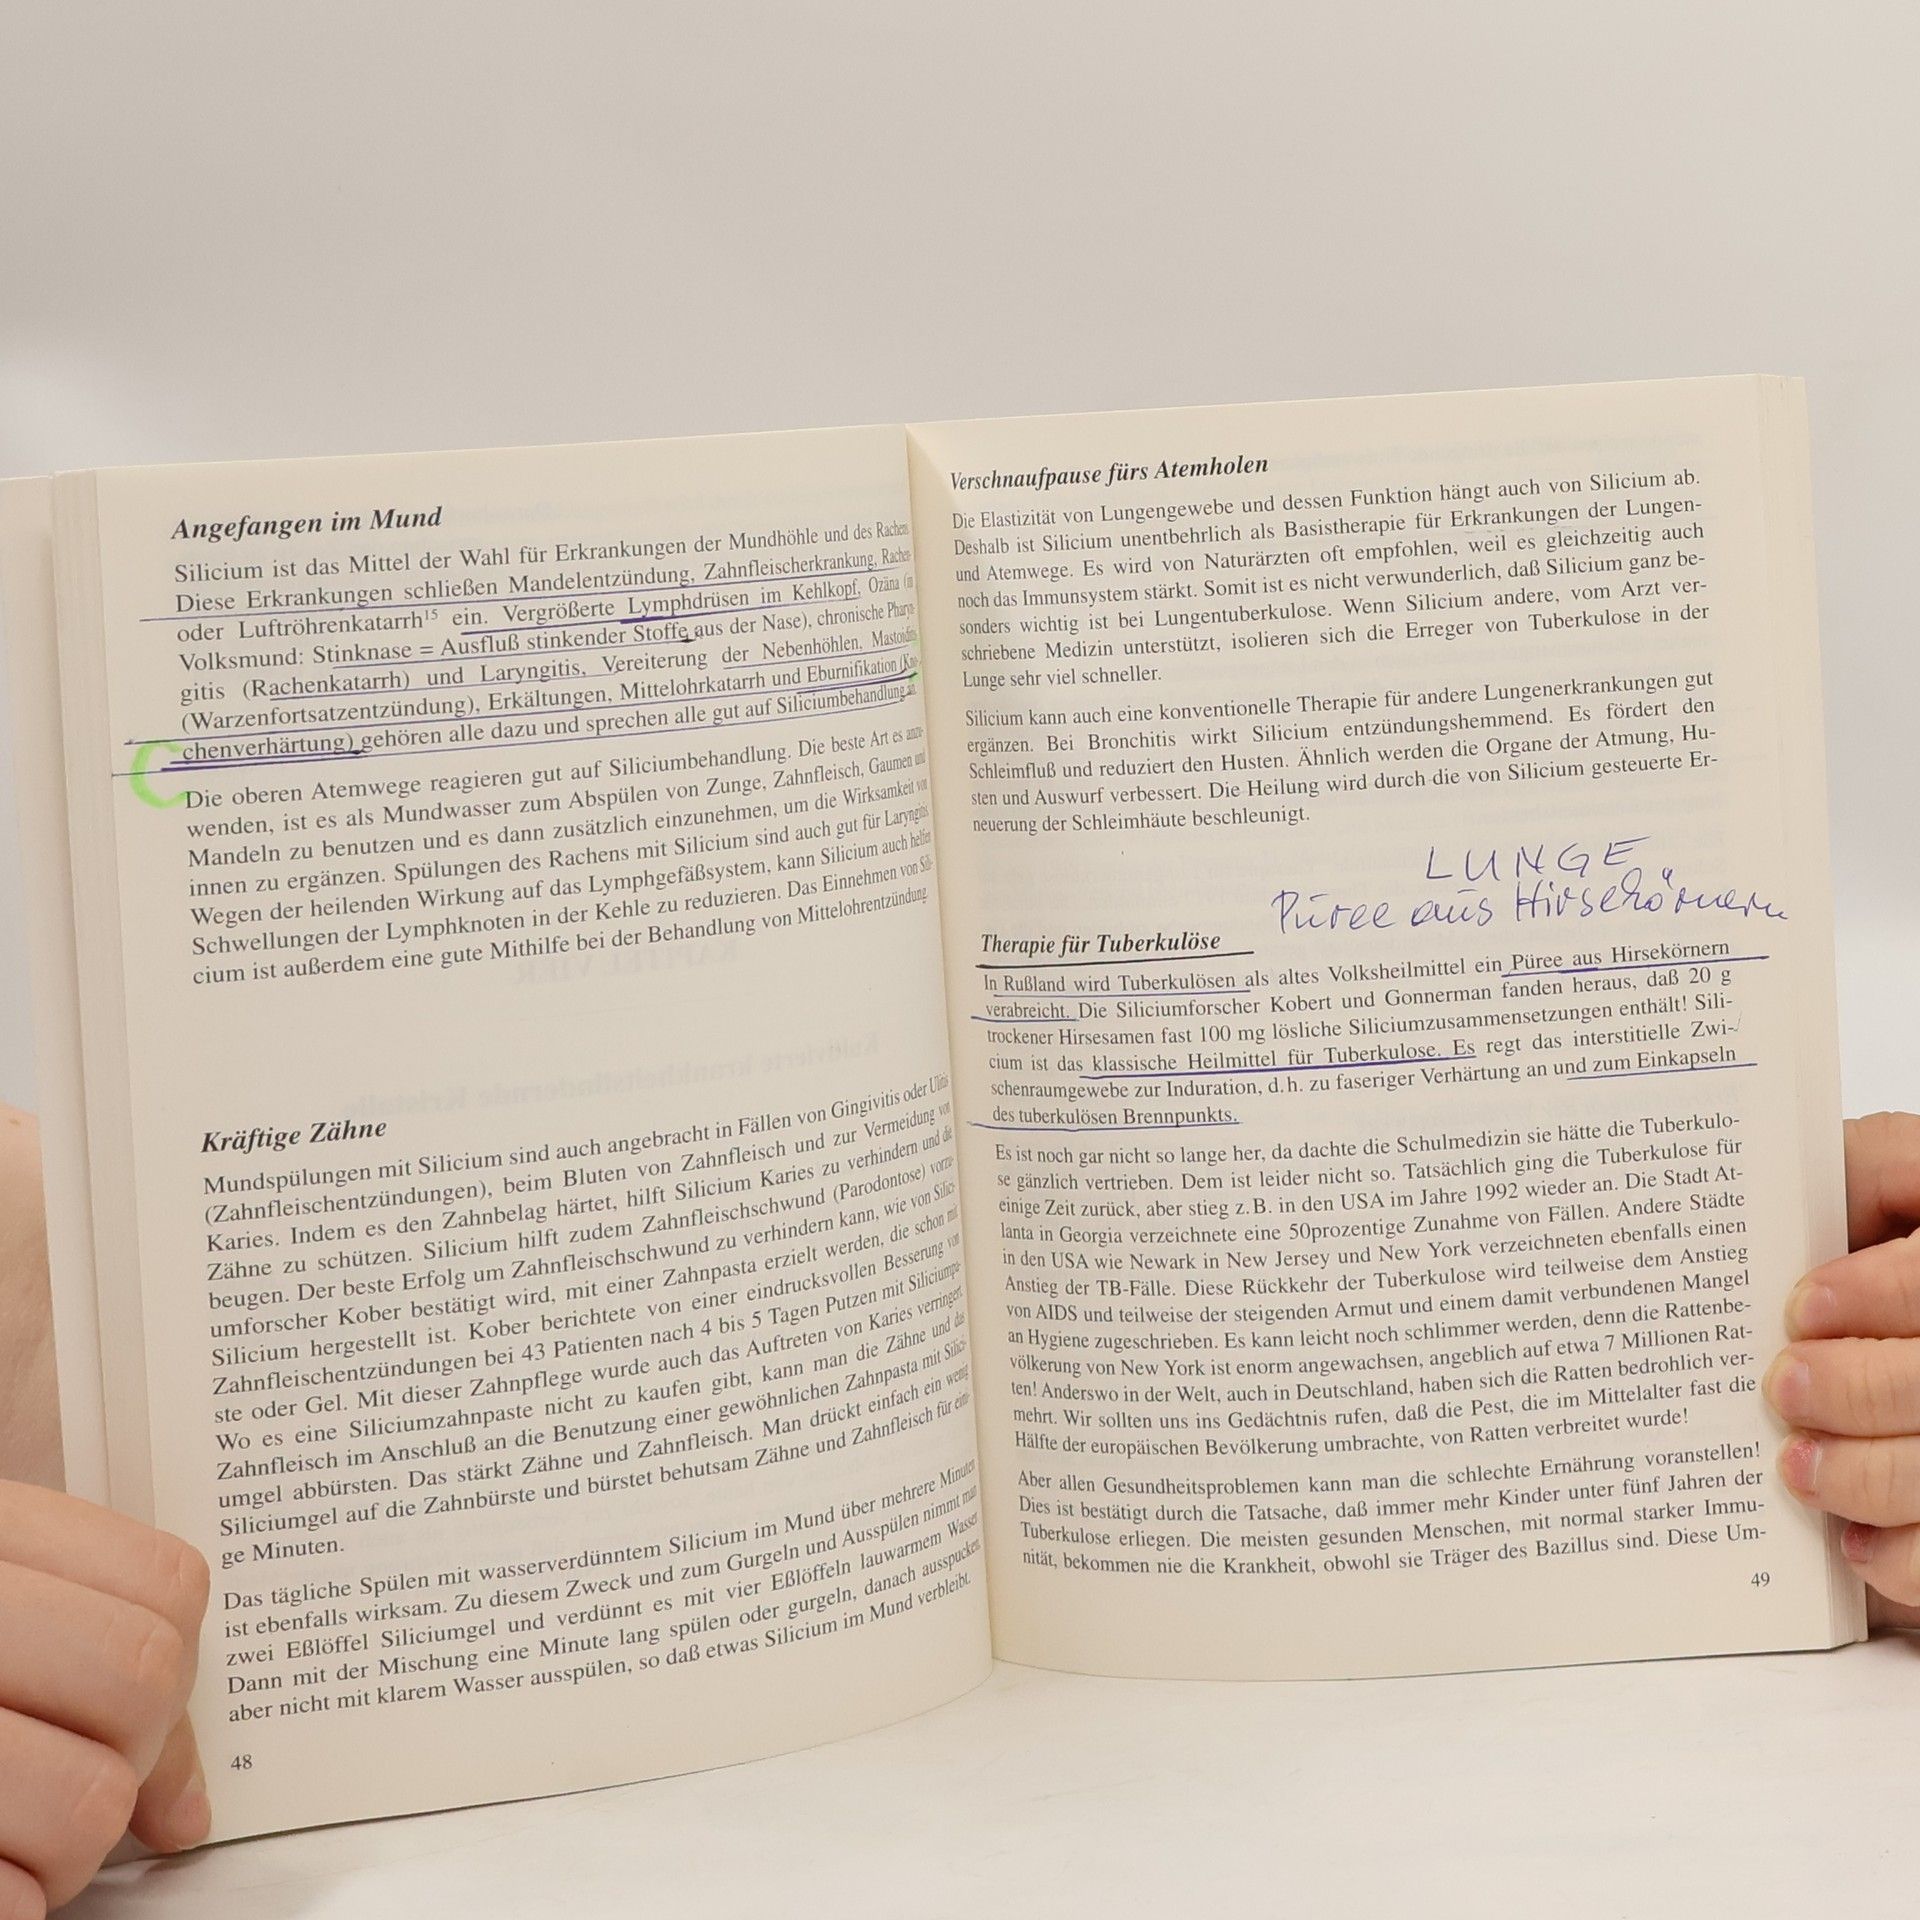 Angefangen im Mund
Silicium ist das Mittel der Wahl für Erkrankungen der Mundhöhle und des Rachens.
Diese Erkrankungen schließen Mandelentzündung, Zahnfleischerkrankung, Rachen-
oder Luftröhrenkatarrh15 ein. Vergrößerte Lymphdrüsen im Kehlkopf, Ozäna (im
Volksmund: Stinknase = Ausfluß stinkender Stoffe aus der Nase), chronische Pharyn-
gitis (Rachenkatarrh) und Laryngitis, Vereiterung der Nebenhöhlen, Mastoiditis
(Warzenfortsatzentzündung), Erkältungen, Mittelohrkatarrh und Eburnifikation (Kno-
chenverhärtung) gehören alle dazu und sprechen alle gut auf Siliciumbehandlung an.
Die oberen Atemwege reagieren gut auf Siliciumbehandlung. Die beste Art es anzu-
wenden, ist es als Mundwasser zum Abspülen von Zunge, Zahnfleisch, Gaumen und
Mandeln zu benutzen und es dann zusätzlich einzunehmen, um die Wirksamkeit von
innen zu ergänzen. Spülungen des Rachens mit Silicium sind auch gut für Laryngitis.
Wegen der heilenden Wirkung auf das Lymphgefäßsystem, kann Silicium auch helfen
Schwellungen der Lymphknoten in der Kehle zu reduzieren. Das Einnehmen von Sili-
cium ist außerdem eine gute Mithilfe bei der Behandlung von Mittelohrentzündung.
Kräftige Zähne
Mundspülungen mit Silicium sind auch angebracht in Fällen von Gingivitis oder Ulitis
(Zahnfleischentzündungen), beim Bluten von Zahnfleisch und zur Vermeidung von
Karies. Indem es den Zahnbelag härtet, hilft Silicium Karies zu verhindern und die
Zähne zu schützen. Silicium hilft zudem Zahnfleischschwund (Parodontose) vorzu-
beugen. Der beste Erfolg um Zahnfleischschwund zu verhindern kann, wie von Silici-
umforscher Kober bestätigt wird, mit einer Zahnpasta erzielt werden, die schon mit
Silicium hergestellt ist. Kober berichtete von einer eindrucksvollen Besserung von
Zahnfleischentzündungen bei 43 Patienten nach 4 bis 5 Tagen Putzen mit Siliciumpa-
ste oder Gel. Mit dieser Zahnpflege wurde auch das Auftreten von Karies verringert.
Wo es eine Siliciumzahnpaste nicht zu kaufen gibt, kann man die Zähne und das
Zahnfleisch im Anschluß an die Benutzung einer gewöhnlichen Zahnpasta mit Silici-
umgel abbürsten. Das stärkt Zähne und Zahnfleisch. Man drückt einfach ein wenig
Siliciumgel auf die Zahnbürste und bürstet behutsam Zähne und Zahnfleisch für eini-
ge Minuten.
Das tägliche Spülen mit wasserverdünntem Silicium im Mund über mehrere Minuten
ist ebenfalls wirksam. Zu diesem Zweck und zum Gurgeln und Ausspülen nimmt man
zwei Eßlöffel Siliciumgel und verdünnt es mit vier Eßlöffeln lauwarmem Wasser.
Dann mit der Mischung eine Minute lang spülen oder gurgeln, danach ausspucken,
aber nicht mit klarem Wasser ausspülen, so daß etwas Silicium im Mund verbleibt.
48
Verschnaufpause fürs Atemholen
Die Elastizität von Lungengewebe und dessen Funktion hängt auch von Silicium ab.
Deshalb ist Silicium unentbehrlich als Basistherapie für Erkrankungen der Lungen-
und Atemwege. Es wird von Naturärzten oft empfohlen, weil es gleichzeitig auch
noch das Immunsystem stärkt. Somit ist es nicht verwunderlich, daß Silicium ganz be-
sonders wichtig ist bei Lungentuberkulose. Wenn Silicium andere, vom Arzt ver-
schriebene Medizin unterstützt, isolieren sich die Erreger von Tuberkulose in der
Lunge sehr viel schneller.
Silicium kann auch eine konventionelle Therapie für andere Lungenerkrankungen gut
ergänzen. Bei Bronchitis wirkt Silicium entzündungshemmend. Es fördert den
Schleimfluß und reduziert den Husten. Ähnlich werden die Organe der Atmung, Hu-
sten und Auswurf verbessert. Die Heilung wird durch die von Silicium gesteuerte Er-
neuerung der Schleimhäute beschleunigt.
LUNGE
Püree aus Hirsekörnern
Therapie für Tuberkulöse
In Rußland wird Tuberkulösen als altes Volksheilmittel ein Püree aus Hirsekörnern
verabreicht. Die Siliciumforscher Kobert und Gonnerman fanden heraus, daß 20 g
trockener Hirsesamen fast 100 mg lösliche Siliciumzusammensetzungen enthält! Sili-
cium ist das klassische Heilmittel für Tuberkulose. Es regt das interstitielle Zwi-
schenraumgewebe zur Induration, d.h. zu faseriger Verhärtung an und zum Einkapseln
des tuberkulösen Brennpunkts.
Es ist noch gar nicht so lange her, da dachte die Schulmedizin sie hätte die Tuberkulo-
se gänzlich vertrieben. Dem ist leider nicht so. Tatsächlich ging die Tuberkulose für
einige Zeit zurück, aber stieg z.B. in den USA im Jahre 1992 wieder an. Die Stadt At-
lanta in Georgia verzeichnete eine 50prozentige Zunahme von Fällen. Andere Städte
in den USA wie Newark in New Jersey und New York verzeichneten ebenfalls einen
Anstieg der TB-Fälle. Diese Rückkehr der Tuberkulose wird teilweise dem Anstieg
von AIDS und teilweise der steigenden Armut und einem damit verbundenen Mangel
an Hygiene zugeschrieben. Es kann leicht noch schlimmer werden, denn die Rattenbe-
völkerung von New York ist enorm angewachsen, angeblich auf etwa 7 Millionen Rat-
ten! Anderswo in der Welt, auch in Deutschland, haben sich die Ratten bedrohlich ver-
mehrt. Wir sollten uns ins Gedächtnis rufen, daß die Pest, die im Mittelalter fast die
Hälfte der europäischen Bevölkerung umbrachte, von Ratten verbreitet wurde!
Aber allen Gesundheitsproblemen kann man die schlechte Ernährung voranstellen!
Dies ist bestätigt durch die Tatsache, daß immer mehr Kinder unter fünf Jahren der
Tuberkulose erliegen. Die meisten gesunden Menschen, mit normal starker Immu-
nität, bekommen nie die Krankheit, obwohl sie Träger des Bazillus sind. Diese Um-
49